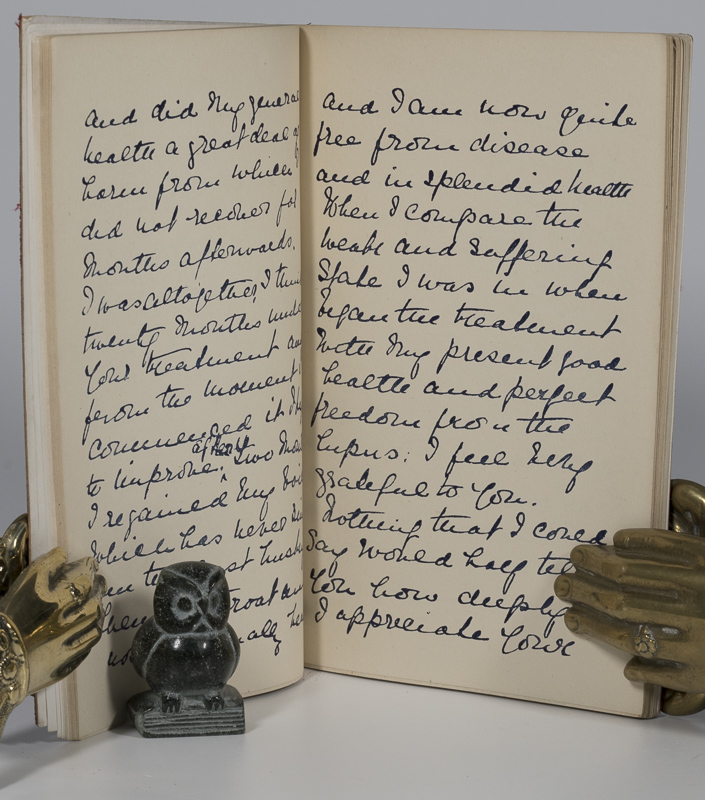 and did my general
health a great deal of
harm from which I
did not recover for
months afterwards.
I was altogether, I think
twenty months under
your treatment and
from the moment I
commenced it I
to improve. after two
I regained my voice
which has never
throat
and I am now quite
free from disease
and in splendid health
When I compare the
weak and suffering
state I was in when
began the treatment
with my present good
health and perfect
freedom from the
lupus: I feel very
grateful to you.
Nothing that I could
say would half tell
you how deeply
I appreciate your